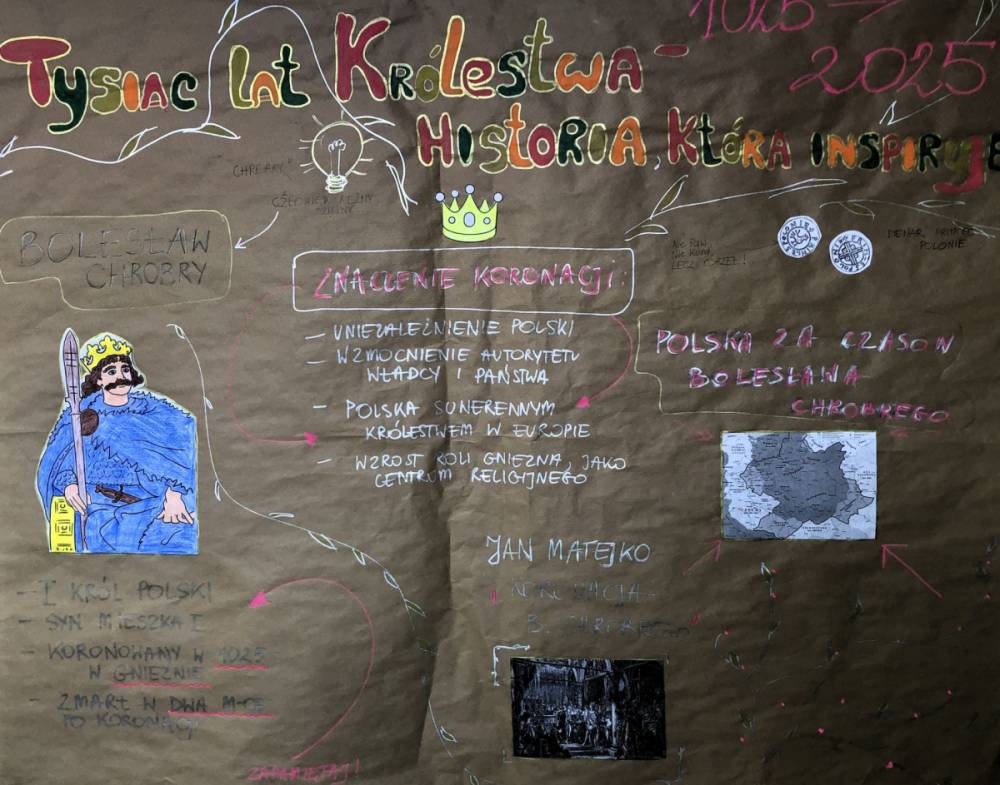 1025 →
2025
Tysiąc lat Królestwa –
Historia, która inspiruje
"CHROBRY"
CZŁOWIEK
BOLESŁAW
CHROBRY
ZNACZENIE KORONACJI:
– UNIEZALEŻNIENIE POLSKI
– WZMOCNIENIE AUTORYTETU
WŁADCY I PAŃSTWA
– POLSKA SUWERENNYM
KRÓLESTWEM W EUROPIE
– WZROST ROLI GNIEZNA, JAKO
CENTRUM RELIGIJNEGO
NIE PAW,
NIE KURA,
LECZ ORZEŁ!
DENAR PRINCES
POLONIE
POLSKA ZA CZASÓW
BOLESŁAWA
CHROBREGO
– I KRÓL POLSKI
– SYN MIESZKA I
– KORONOWANY W 1025
W GNIEŹNIE
– ZMARŁ W DWA M-CE
PO KORONACJI
ZAPAMIĘTAJ!
JAN MATEJKO
KORONACJA
B. CHROBREGO